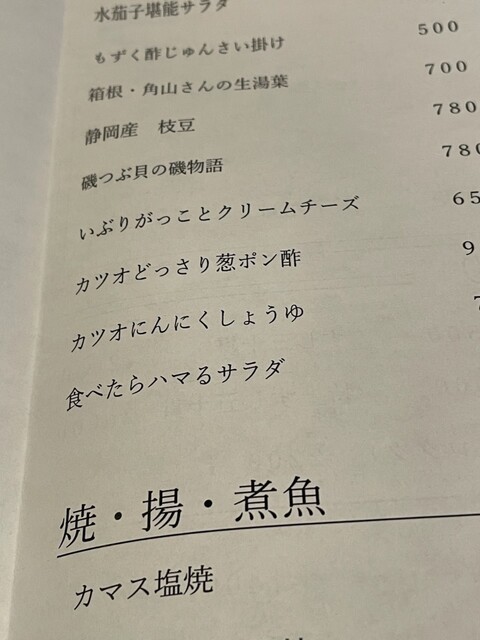 水茄子堪能サラダ
もずく酢じゅんさい掛け 500
箱根・角山さんの生湯葉 700
静岡産 枝豆 780
磯つぶ貝の磯物語 780
いぶりがっことクリームチーズ 65
カツオどっさり葱ポン酢 9
カツオにんにくしょうゆ
食べたらハマるサラダ
焼・揚・煮魚
カマス塩焼